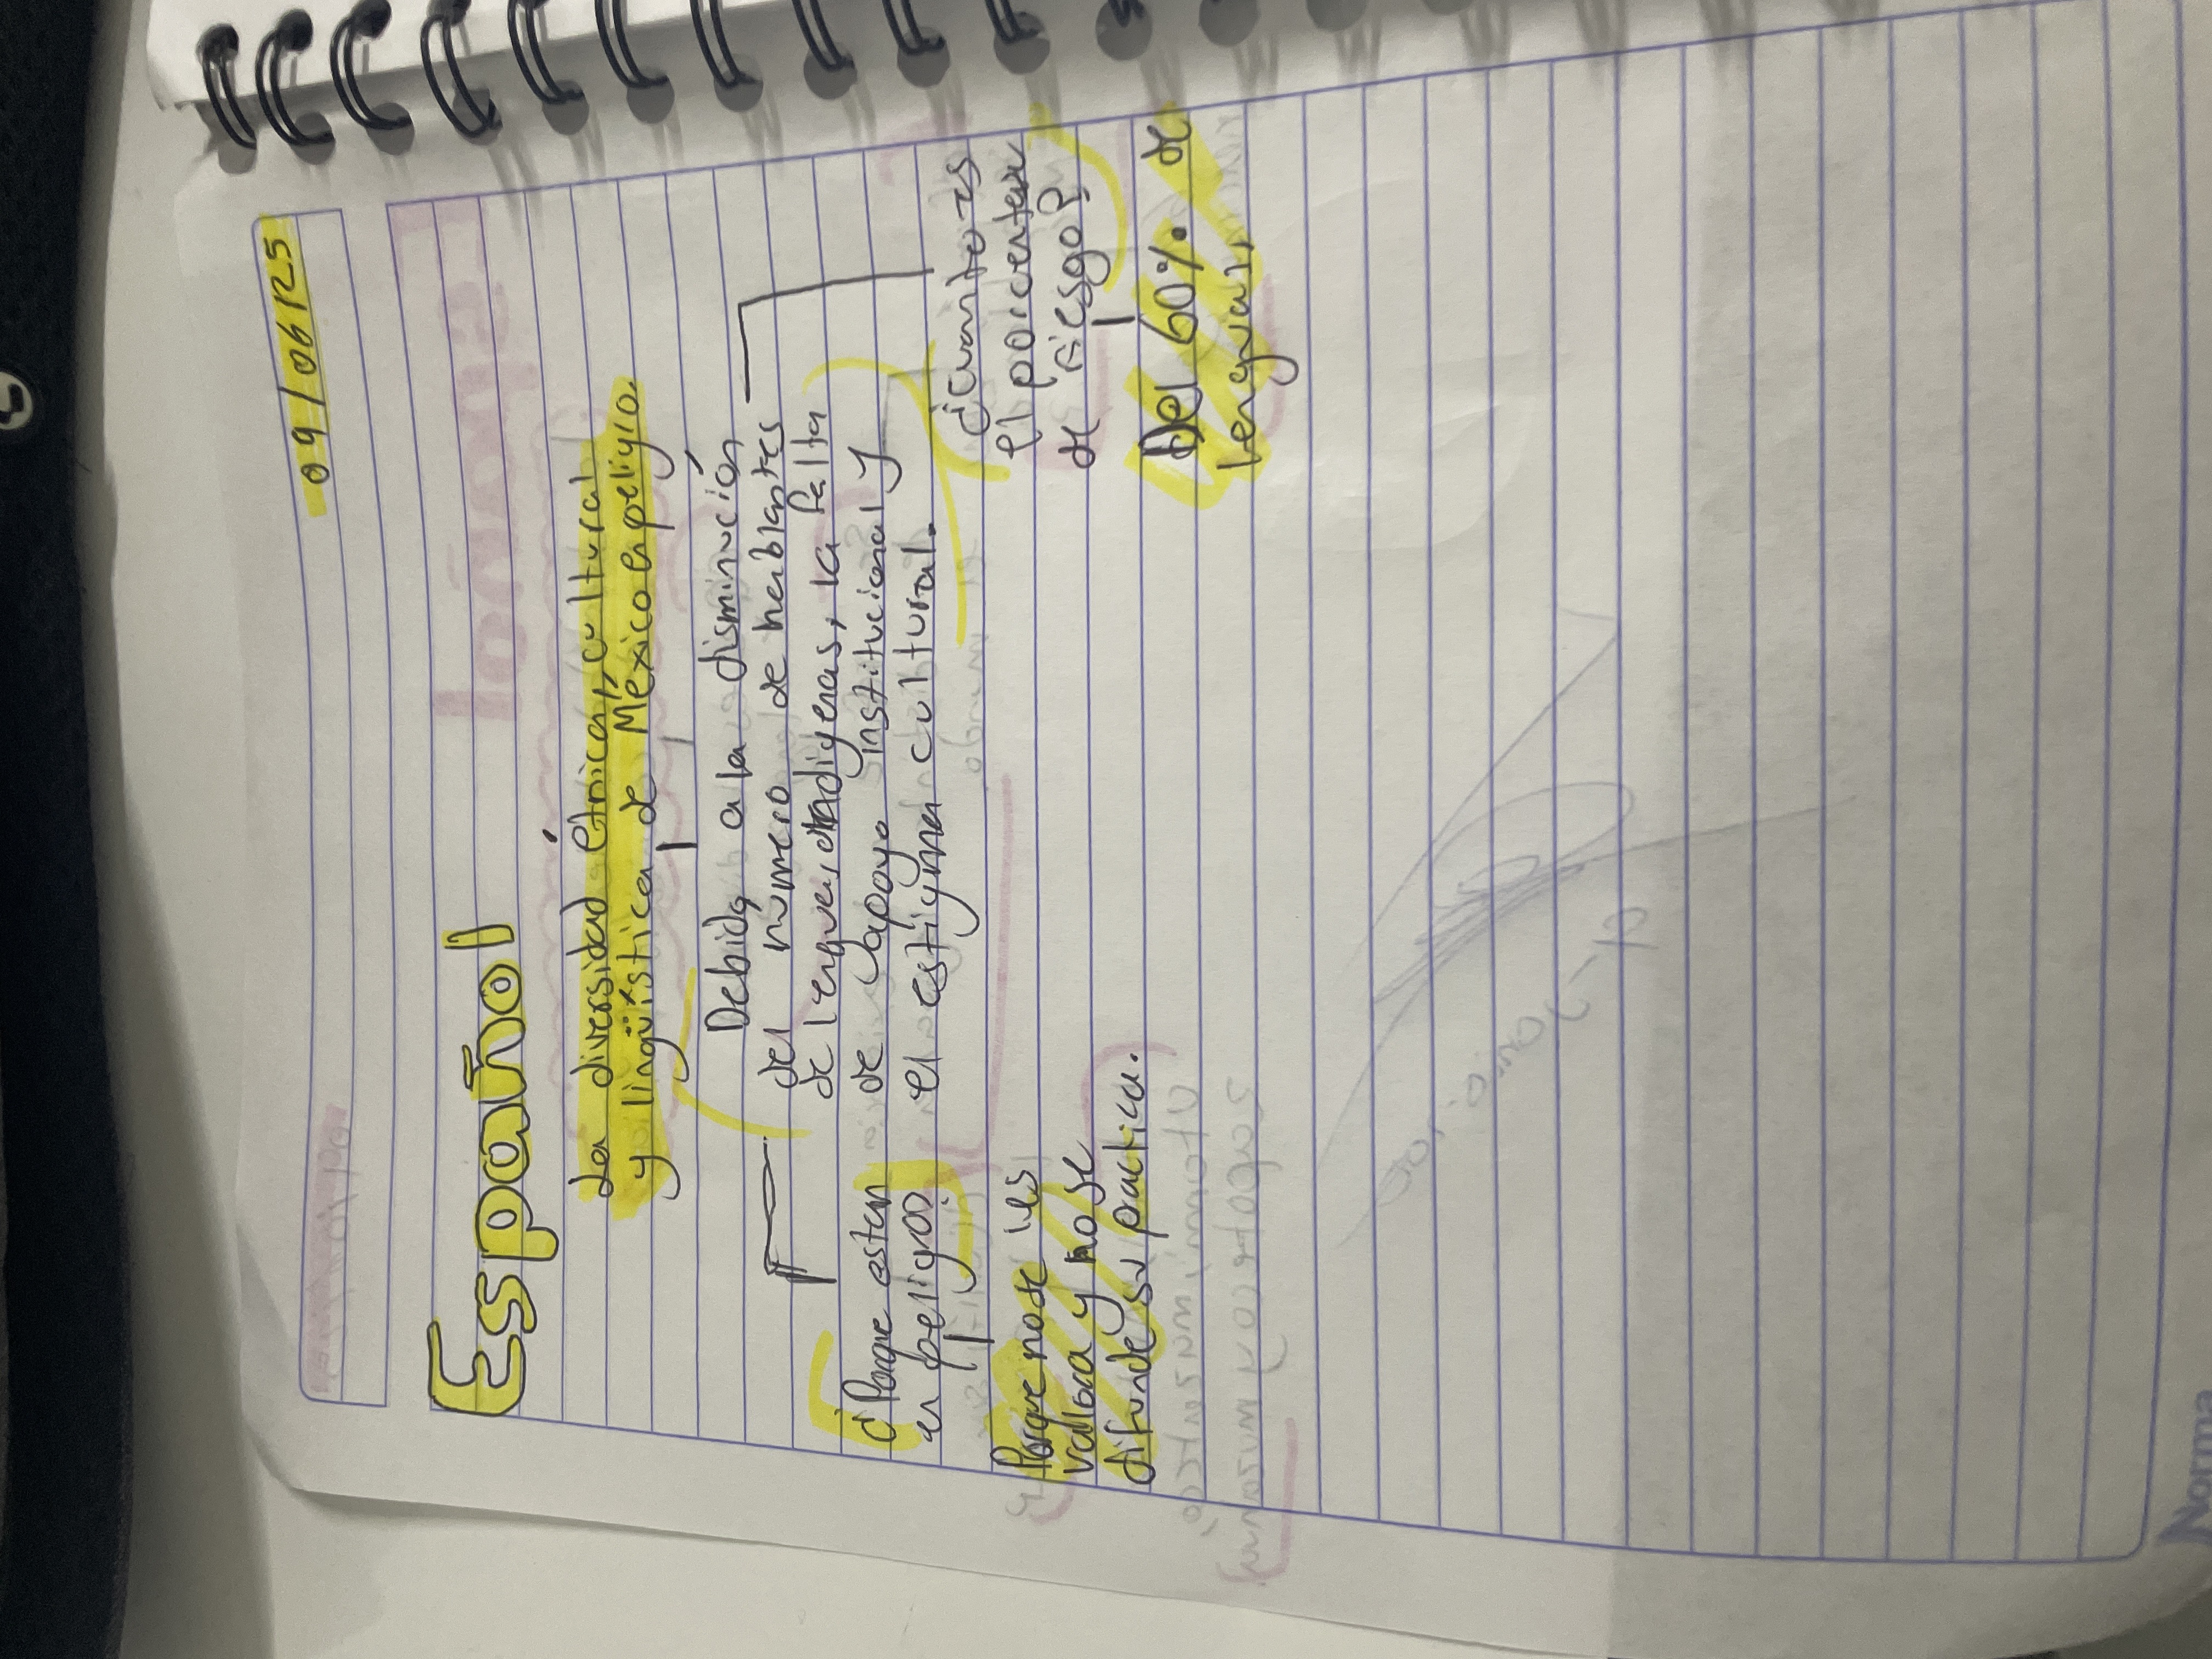 09/06/25
Español
La diversidad étnica, cultural
y lingüística de México en peligro.
Debido a la disminución
del número de hablantes
de lenguas indigenas, la falta
de apoyo institucional y
el estigma cultural.
¿Porque estan
en peligro?
Porque no se les
valora y no se
difunde su practica.
¿cuanto es
el porcentaje
de riesgo?
Del 60% de
lenguas,
Norma